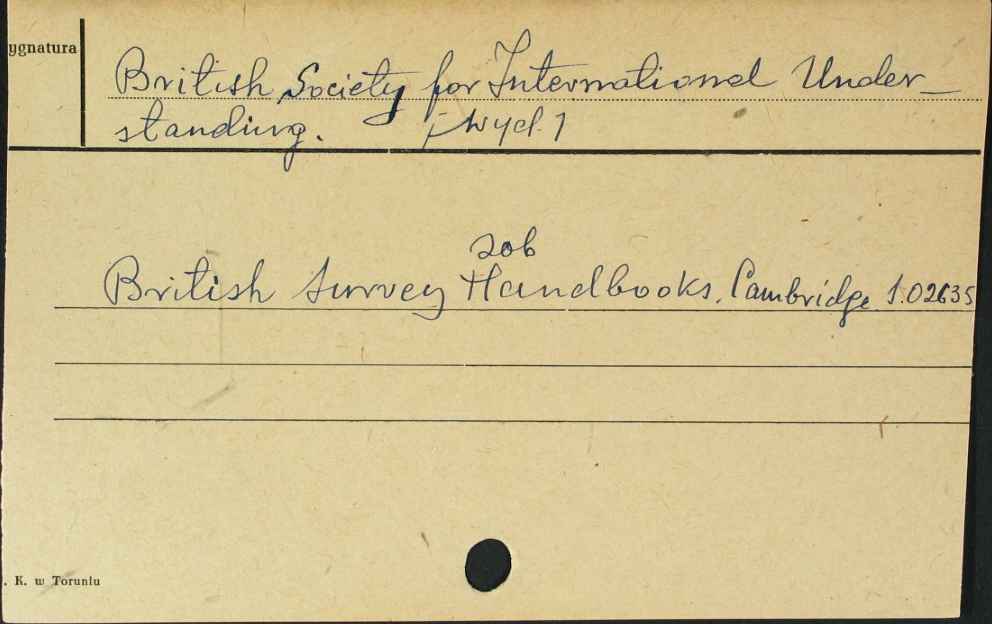 ygnatura
British Society for International Under-
standing. [wyd.]
zob
British Survey Handbooks. Cambridge. 1.02635
. K. w Toruniu